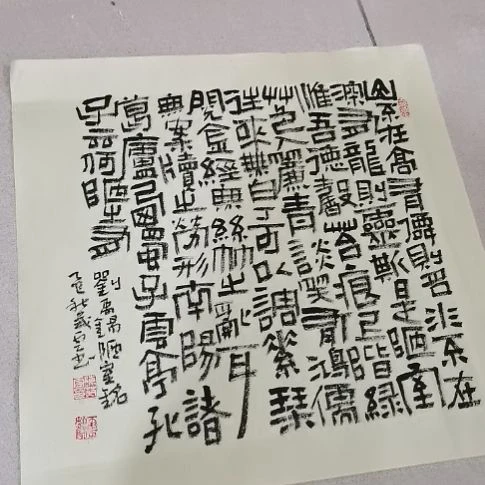 山不在高有僊則名水不在
深有龍則靈斯是陋室
惟吾德馨苔痕上階綠
艸色入簾青談笑有鴻儒
往來無白丁可以調素琴
閱金經無絲竹之亂耳
無案牘之勞形南陽諸
葛廬西蜀子雲亭孔
子云何陋之有
劉禹錫陋室銘